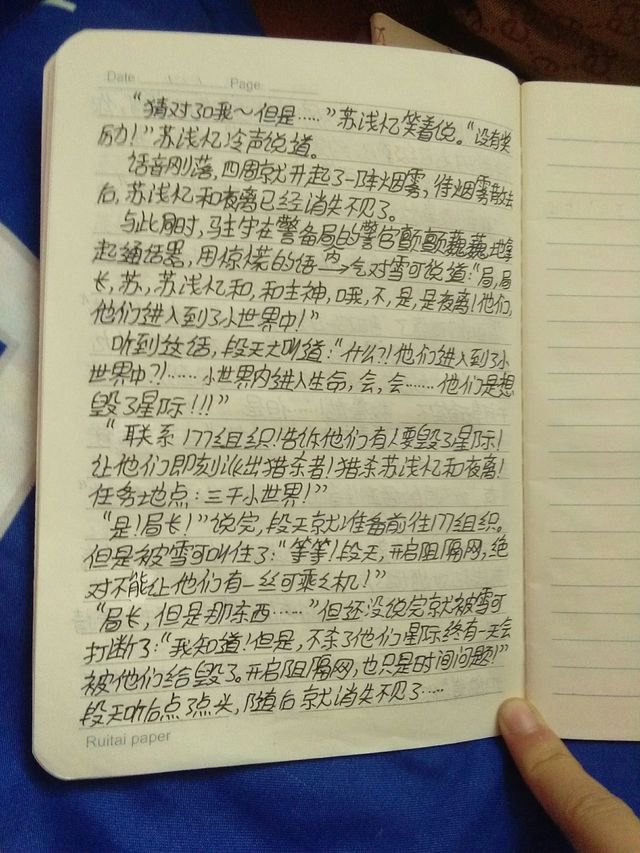 Date / / Page
“猜对了哦～但是……”苏浅忆笑着说。“没有奖
励！”苏浅忆冷声说道。
话音刚落，四周就升起了一阵烟雾，待烟雾散去
后，苏浅忆和夜离已经消失不见了。
与此同时，驻守在警备局的警官颤颤巍巍地拿
起通话器，用惊慌的语气对雪可说道：“局，局
长，苏，苏浅忆和，和主神，哦，不，是，是夜离！他们，
他们进入到了小世界中！”
听到这话，段天大叫道：“什么？！他们进入到了小
世界中？！……小世界内进入生命，会，会……他们是想
毁了星际！！！”
“联系177组织！告诉他们有人要毁了星际！
让他们即刻派出猎杀者！猎杀苏浅忆和夜离！
任务地点：三千小世界！”
“是！局长！”说完，段天就准备前往177组织。
但是被雪可叫住了：“等等！段天，开启阻隔网，绝
对不能让他们有一丝可乘之机！”
“局长，但是那东西……”但还没说完就被雪可
打断了：“我知道！但是，不杀了他们星际终有一天会
被他们给毁了。开启阻隔网，也只是时间问题！”
段天听后点了点头，随后就消失不见了……
Ruitai paper